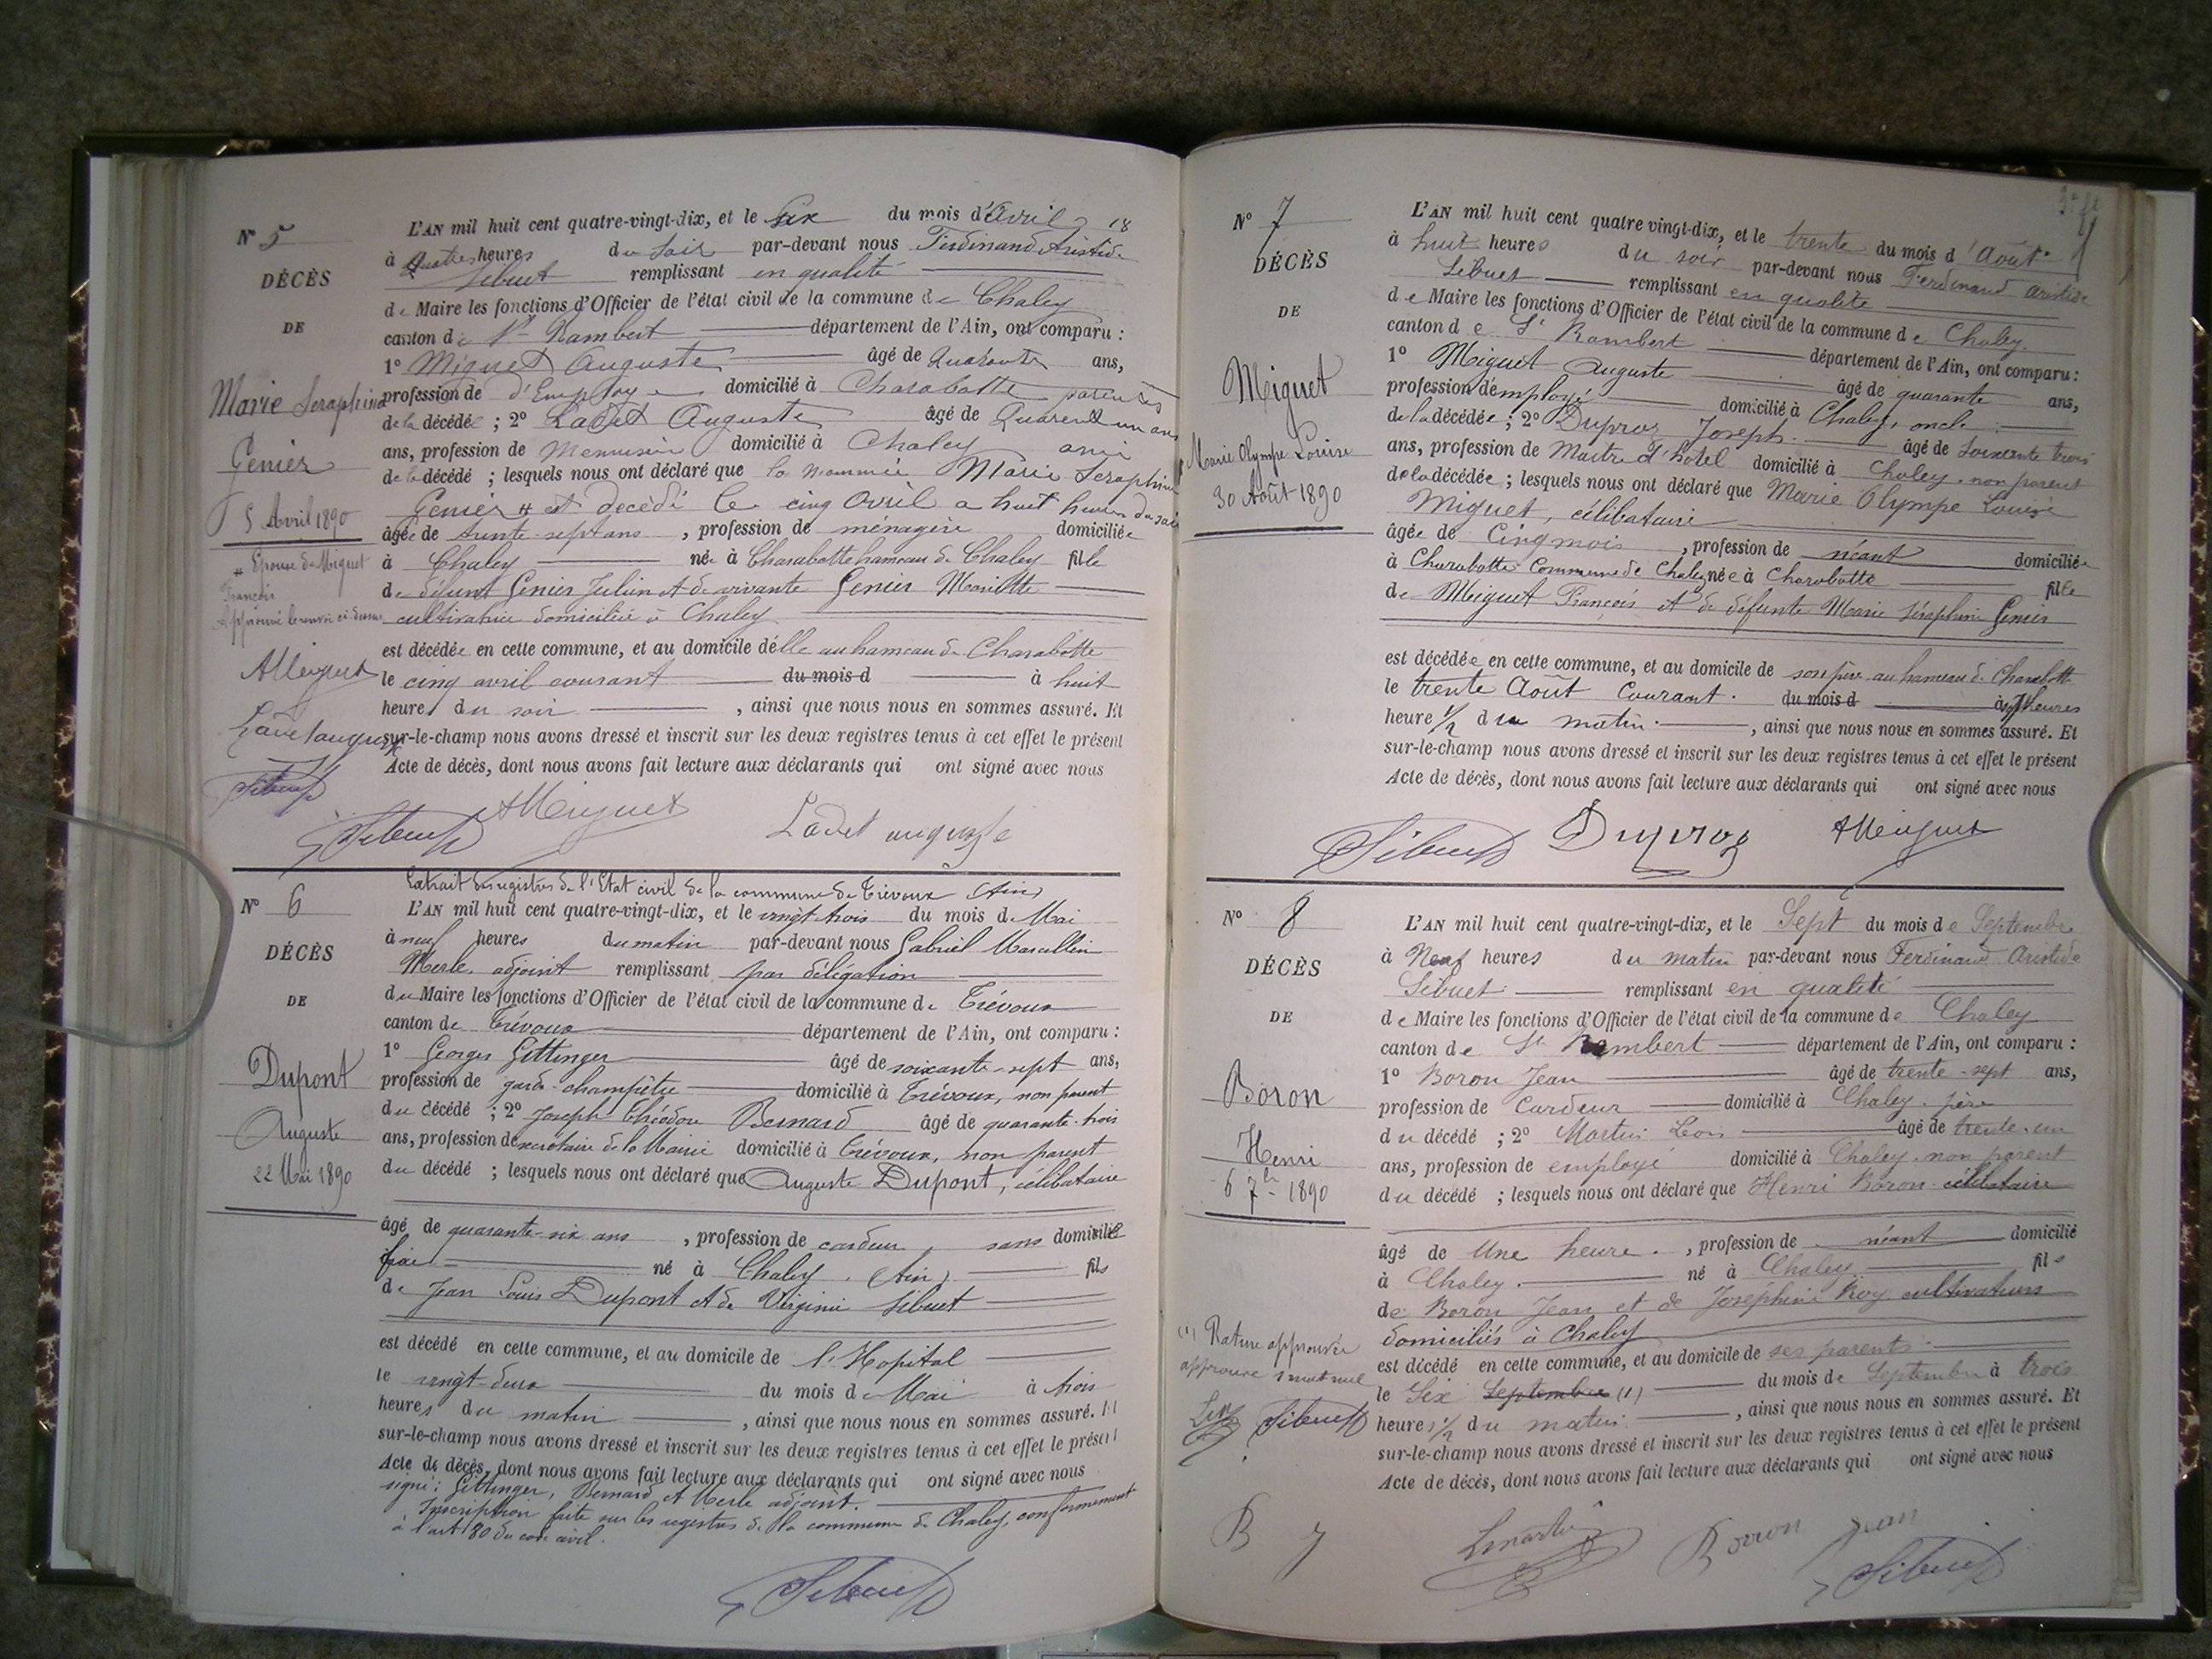 N° 5
DÉCÈS
DE
Marie Seraphine
Genier
5 Avril 1890
# Epouse de Miguet
François
Approuvé le renvoi ci-dessus
AMiguet
Ladet auguste
Sibuet
L'AN mil huit cent quatre-vingt-dix, et le Six du mois d'Avril 18
à Quatre heures du Soir par-devant nous Ferdinand Aristide
Sibuet remplissant en qualité
de Maire les fonctions d'Officier de l'état civil de la commune de Chaley
canton de St Rambert département de l'Ain, ont comparu :
1° Miguet Auguste âgé de Quarante ans,
profession de d'Employe domicilié à Charabotte
de la décédée ; 2° Ladet Auguste âgé de Quarent un ans
ans, profession de Menuisier domicilié à Chaley ami
de la décédé ; lesquels nous ont déclaré que la nommée Marie Seraphine
Genier # est decédé le cinq Avril a huit heures du soir
âgée de trente-sept ans , profession de ménagère domiciliée
à Chaley née à Charabotte hameau de Chaley fille
de défunt Genier Julien et de vivante Genier Mariette
cultivatrice domiciliée à Chaley
est décédée en cette commune, et au domicile d'elle au hameau de Charabotte
le cinq avril courant du mois d à huit
heures du soir , ainsi que nous nous en sommes assuré. Et
sur-le-champ nous avons dressé et inscrit sur les deux registres tenus à cet effet le présent
Acte de décès, dont nous avons fait lecture aux déclarants qui ont signé avec nous
Sibuet AMiguet Ladet auguste
N° 6
DÉCÈS
DE
Dupont
Auguste
22 Mai 1890
Extrait des registres de l'Etat civil de la commune de Trévoux (Ain)
L'AN mil huit cent quatre-vingt-dix, et le vingt-trois du mois de Mai
à neuf heures du matin par-devant nous Gabriel Marcellin
Merle, adjoint remplissant par délégation
du Maire les fonctions d'Officier de l'état civil de la commune de Trévoux
canton de Trévoux département de l'Ain, ont comparu :
1° Georges Gettinger âgé de soixante-sept ans,
profession de garde-champêtre domicilié à Trévoux, non parent
du décédé ; 2° Joseph Théodore Bernard âgé de quarante-trois
ans, profession de secrétaire de la Mairie domicilié à Trévoux, non parent
du décédé ; lesquels nous ont déclaré que Auguste Dupont, célibataire
âgé de quarante-six ans , profession de cardeur, sans domicile
fixe né à Chaley (Ain) fils
de Jean Louis Dupont et de Virginie Sibuet
est décédé en cette commune, et au domicile de l'Hopital
le vingt-deux du mois de Mai à trois
heures du matin , ainsi que nous nous en sommes assuré. Et
sur-le-champ nous avons dressé et inscrit sur les deux registres tenus à cet effet le présent
Acte de décès, dont nous avons fait lecture aux déclarants qui ont signé avec nous
signé : Gettinger, Bernard et Merle adjoint.
Inscription faite sur les registres de la commune de Chaley, conformement
à l'art 80 du code civil.
Sibuet
N° 7
DÉCÈS
DE
Miguet
Marie Olympe Louise
30 Août 1890
L'AN mil huit cent quatre-vingt-dix, et le trente du mois d'Août
à huit heures du soir par-devant nous Ferdinand Aristide
Sibuet remplissant en qualité
de Maire les fonctions d'Officier de l'état civil de la commune de Chaley
canton de St Rambert département de l'Ain, ont comparu :
1° Miguet Auguste âgé de quarante ans,
profession d'employé domicilié à Chaley, oncle
de la décédée ; 2° Duproz Joseph âgé de Soixante trois
ans, profession de Maitre d'hotel domicilié à Chaley, non parent
de la décédée ; lesquels nous ont déclaré que Marie Olympe Louise
Miguet, célibataire
âgée de Cinq mois , profession de néant domiciliée
à Charabotte Commune de Chaley née à Charabotte fille
de Miguet François et de défunte Marie Séraphine Genier
est décédée en cette commune, et au domicile de son père au hameau de Charabotte
le trente Août Courant du mois d à 7 heures
heure 1/2 du matin , ainsi que nous nous en sommes assuré. Et
sur-le-champ nous avons dressé et inscrit sur les deux registres tenus à cet effet le présent
Acte de décès, dont nous avons fait lecture aux déclarants qui ont signé avec nous
Sibuet Duproz AMiguet
N° 8
DÉCÈS
DE
Boron
Henri
6 7bre 1890
(1) Rature approuvée
Sibuet
L'AN mil huit cent quatre-vingt-dix, et le Sept du mois de Septembre
à Neuf heures du matin par-devant nous Ferdinand Aristide
Sibuet remplissant en qualité
de Maire les fonctions d'Officier de l'état civil de la commune de Chaley
canton de St Rambert département de l'Ain, ont comparu :
1° Boron Jean âgé de trente-sept ans,
profession de Cardeur domicilié à Chaley, père
du décédé ; 2° Martin Leon âgé de trente-un
ans, profession de employé domicilié à Chaley, non parent
du décédé ; lesquels nous ont déclaré que Henri Boron célibataire
âgé de Une heure , profession de néant domicilié
à Chaley né à Chaley fils
de Boron Jean et de Joséphine Roy cultivateurs
domiciliés à Chaley
est décédé en cette commune, et au domicile de ses parents
le Six Septembre (1) du mois de Septembre à trois
heures 1/2 du matin , ainsi que nous nous en sommes assuré. Et
sur-le-champ nous avons dressé et inscrit sur les deux registres tenus à cet effet le présent
Acte de décès, dont nous avons fait lecture aux déclarants qui ont signé avec nous
B J Lmartin Boron Jean
Sibuet